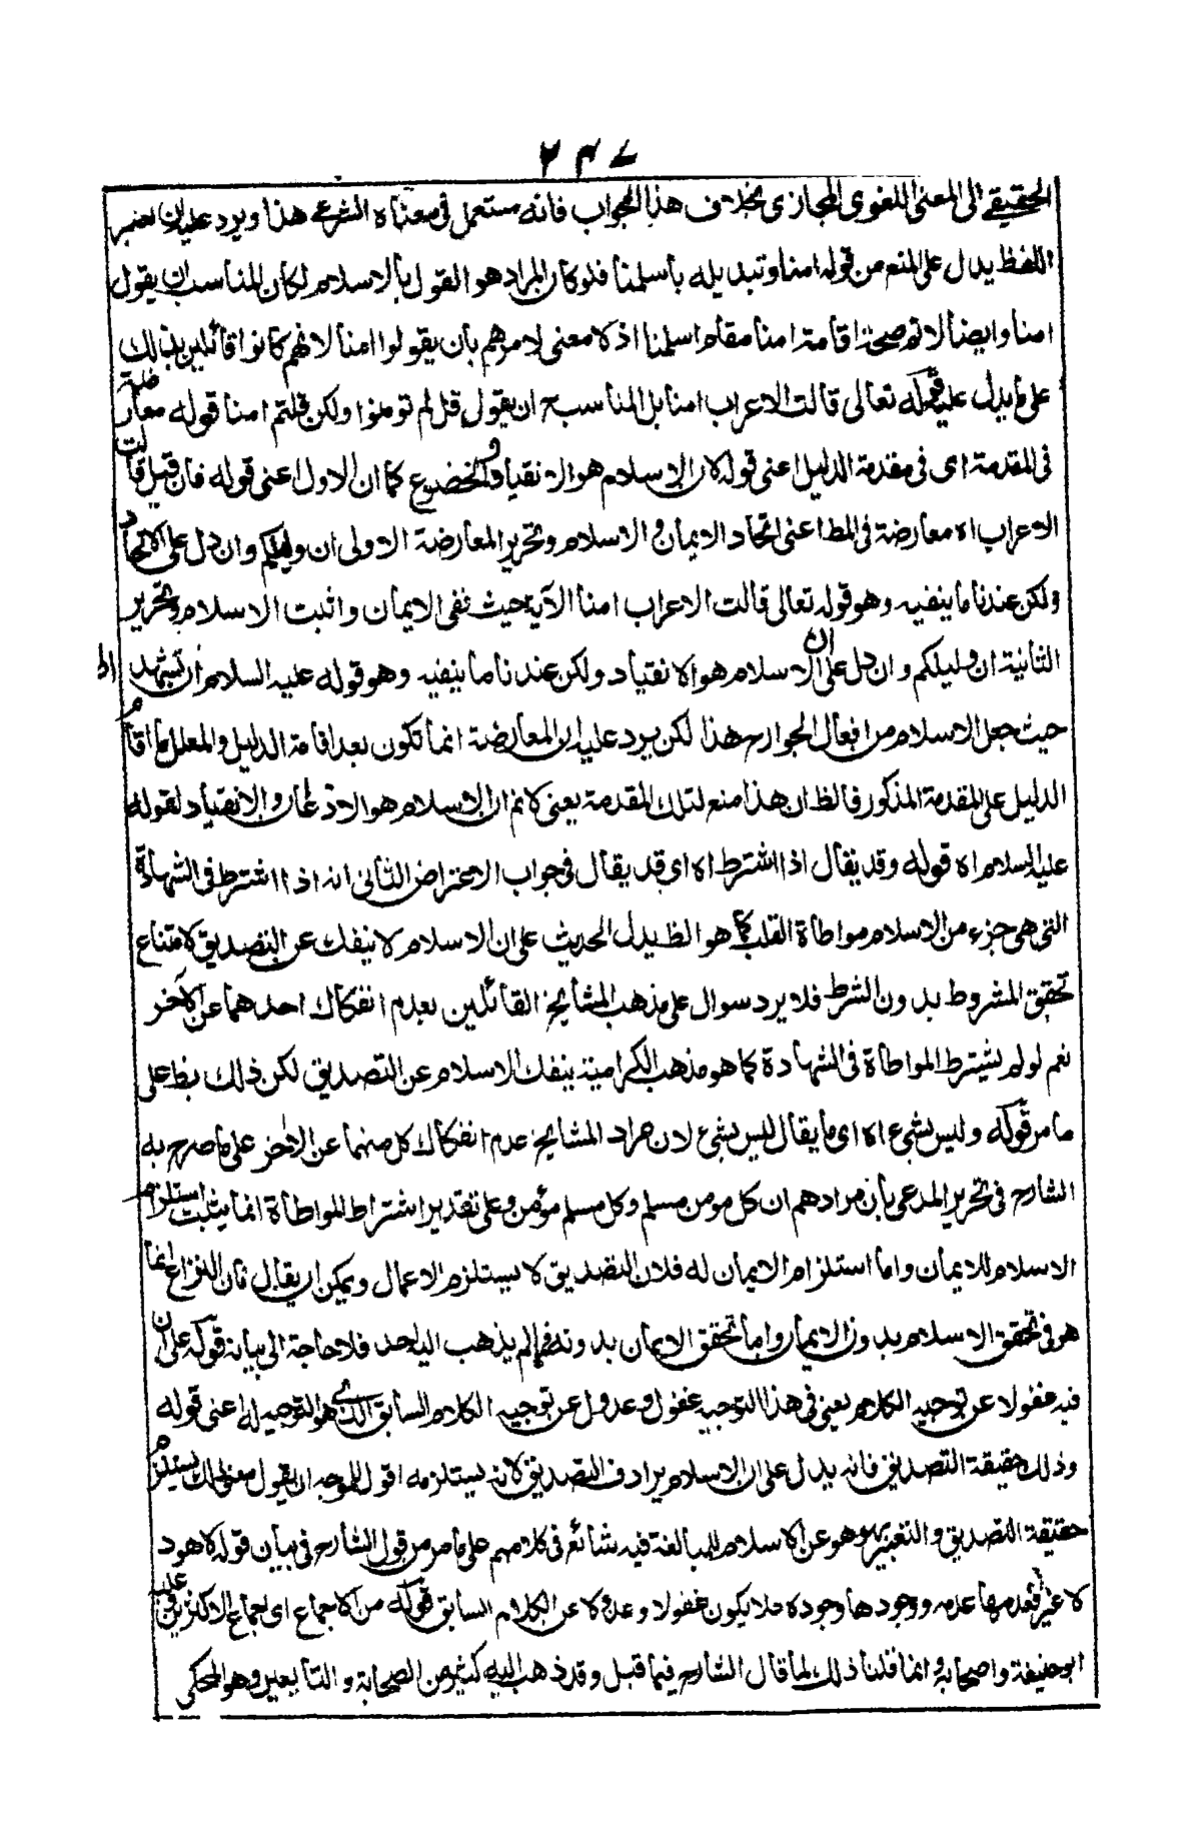 ٢٣٧
الحقيقي الى المعنى اللغوي المجازي بخلاف هذا الجواب فانه مستعمل في معناه الشرعي هذا ويرد عليه ان تغيير
اللفظ يدل على المنع من قوله امنا وتبديله باسلمنا فلو كان المراد هو القول بالاسلام لكان المناسب ان يقول
امنا وايضا لا تم صحة اقامة امنا مقام اسلمنا اذ لا معنى لامرهم بان يقولوا امنا لانهم كانوا قائلين بذلك
على ما يدل عليه قوله تعالى قالت الاعراب امنا بل المناسب ح ان يقول قل لم تومنوا ولكن قلتم امنا قوله معارضة
في المقدمة اى في مقدمة الدليل اعنى قوله لان الاسلام هو الانقياد والخضوع كما ان الاول اعنى قوله فان قيل قالت
الاعراب اه معارضة في المط اعنى اتحاد الايمان والاسلام وتحرير المعارضة الاولى ان دليلكم وان دل على الاتحاد
ولكن عندنا ما ينفيه وهو قوله تعالى قالت الاعراب امنا الآية حيث نفى الايمان واثبت الاسلام وتحرير
الثانية ان دليلكم وان دل على ان الاسلام هو الانقياد ولكن عندنا ما ينفيه وهو قوله عليه السلام ان تشهد اه
حيث جعل الاسلام من افعال الجوارح هذا لكن يرد عليه ان المعارضة انما تكون بعد اقامة الدليل والمعلل ما اقام
الدليل على المقدمة المذكور فالظ ان هذا منع لتلك المقدمة يعنى لا نم ان الاسلام هو الاذعان والانقياد لقوله
عليه السلام اه قوله وقد يقال اذا اشترط اه اى قد يقال في جواب الاعتراض الثانى انه اذا اشترط في الشهادة
التى هى جزء من الاسلام مواطاة القلب كما هو الظ يدل الحديث على ان الاسلام لا ينفك عن التصديق لامتناع
تحقق المشروط بدون الشرط فلا يرد سوال على مذهب المشايخ القائلين بعدم انفكاك احدهما عن الآخر
نعم لو لم يشترط المواطاة في الشهادة كما هو مذهب الكرامية ينفك الاسلام عن التصديق لكن ذلك بط على
ما مر قوله وليس بشيء اه اى ما يقال ليس بشيء لان مراد المشايخ عدم انفكاك كل منهما عن الاخر على ما صرح به
الشارح في تحرير المدعى بان مرادهم ان كل مومن مسلم وكل مسلم مؤمن وعلى تقدير اشتراط المواطاة انما يثبت استلزام
الاسلام للايمان واما استلزام الايمان له فلا لان التصديق لا يستلزم الاعمال ويمكن ان يقال بان النزاع انما
هو في تحقق الاسلام بدون الايمان واما تحقق الايمان بدونه فمما لم يذهب اليه احد فلا حاجة الى بيانه قوله على ان
فيه غفولا عن توجيه الكلام يعنى في هذا التوجيه غفول وعدول عن توجيه الكلام السابق الذى هو التوجيه له اعنى قوله
وذلك حقيقة التصديق فانه يدل على ان الاسلام يرادف التصديق لا انه يستلزمه اقول للموجه ان يقول معنى ذلك يستلزم
حقيقة التصديق والتعبير بهو هو عن الاستلزام للمبالغة فيه شائع في كلامهم على ما مر من قول الشارح في بيان قوله لا هو
لا غيره فعدمها عدمه ووجودها وجوده فلا يكون غفولا وعدولا عن الكلام السابق قوله من الاجماع اى اجماع الاكثرين عليه
ابو حنيفة واصحابه وانما قلنا ذلك لما قال الشارح فيما قبل وقد ذهب اليه كثير من الصحابة والتابعين وهو المحكى